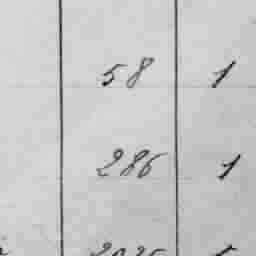 58 1
286 1